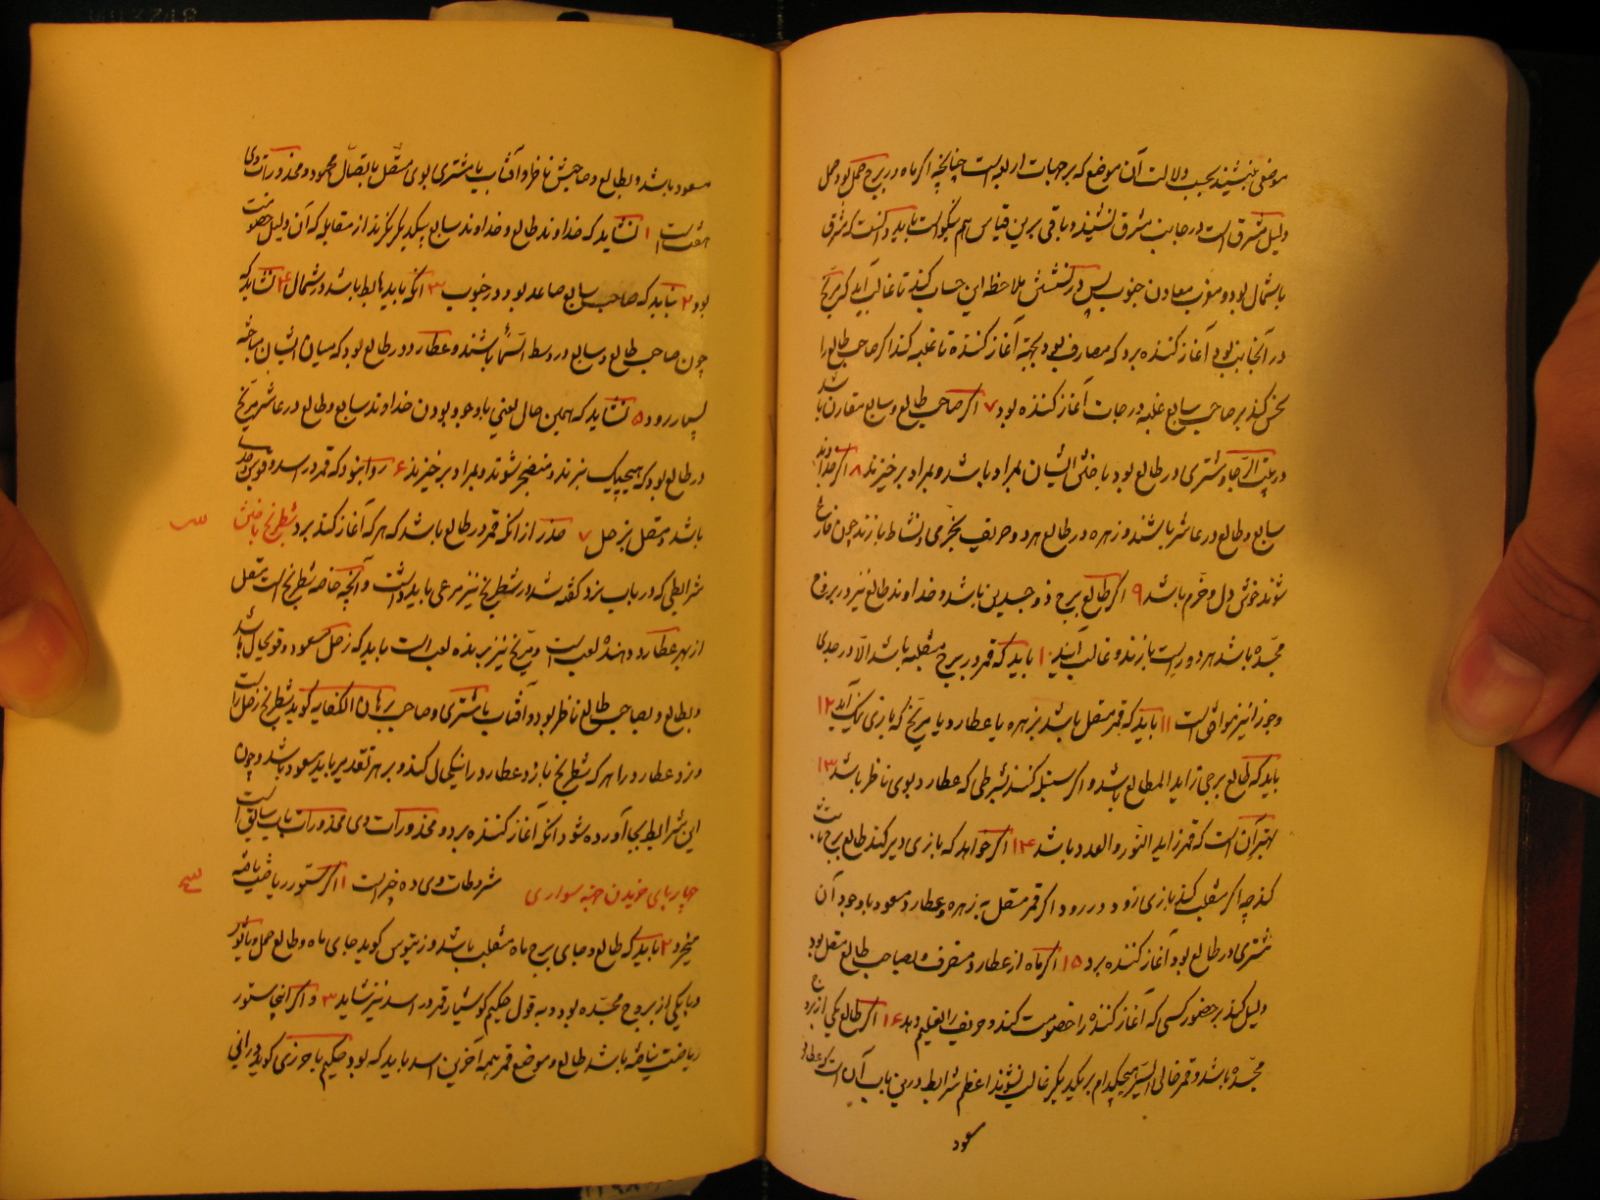 موضعی بنشیند بحسب دلالت آن موضع که بر جهات اربعه است چنانچه اگر ماه در برج حمل بود حمل
دلیل مشرق است در جانب مشرق نشیند و باقی برین قیاس هم نیکو است باید دانست که مشرق
با شمال بود و مغرب معاون جنوب پس در نشستن ملاحظه این حساب کند تا غالب آید که مریخ
در آنجانب بود آغاز کننده برد که مصارف بود بجهة آغاز کننده تا غلبه کند اگر صاحب طالع را
نحس کند بر صاحب سابع غلبه در جات آغاز کننده بود ۷ اگر صاحب طالع و سابع مقارن باشد
در بیت الرجا و مشتری در طالع بود باختن ایشان بمراد باشد و بمراد برخیزند ۸ اگر خداوند
سابع و طالع در عاشر باشند و زهره در طالع هر دو حریف بخرمی و نشاط بازند چون فارغ
شوند خوش دل و خرم باشند ۹ اگر طالع برج ذو جسدین باشد و خداوند طالع نیز در بروج
مجسده باشد هر دو راست بازند و غالب آیند ۱۰ باید که قمر در برج منقلبه باشد الا در جدی
و جوزا نیز موافق است ۱۱ باید که قمر متصل باشد بزهره یا عطارد یا مریخ که بازی نیک آید ۱۲
باید که طالع برجی زاید المطالع باشد و اگر سنبله کنند بشرطی که عطارد بوی ناظر باشد ۱۳
بهتر آن است که قمر زاید النور و العدد باشد ۱۴ اگر خواهد که بازی دیر کند طالع برج ثابت
کند چه اگر منقلب کند بازی زود در رود اگر قمر متصل به زهره و عطارد مسعود با وجود آن
مشتری در طالع بود آغاز کننده برد ۱۵ اگر ماه از عطارد منصرف و بصاحب طالع متصل بود
دلیل کند بر حضور کسی که آغاز کننده را خصومت کند و حریف را تعلیم دهد ۱۶ اگر طالع یکی از بروج
مجسده باشد و قمر خالی السیر هیچکدام بر یکدیگر غالب نشوند اعظم شرایط درین باب آن است که عطارد
مسعود
مسعود باشد و بطالع و صاحبش ناظر و آفتاب یا مشتری بوی متصل باتصال محمود و محذورات وی
هفت است ۱ نشاید که خداوند طالع و خداوند سابع بیکدیگر نگرند از مقابله که آن دلیل خصومت
بود ۲ نباید که صاحب سابع صاعد بود در جنوب ۳ آنکه باید هابط باشد در شمال ۴ نشاید که
چون صاحب طالع و سابع در وسط السما باشند و عطارد در طالع بود که میان ایشان مناقشه
بسیار رود ۵ نشاید که همین حال یعنی با وجود بودن خداوند سابع و طالع در عاشر مریخ
در طالع بود که هیچیک نبرند و منضجر شوند و بمراد برخیزند ۶ روا نبود که قمر در اسد و قوس و جدی
باشد و متصل بزحل ۷ حذر از آنکه قمر در طالع باشد که هر که آغاز کند برد شطرنج باختن
شرایطی که در باب نرد گفته شد در شطرنج نیز مرعی باید داشت و آنچه خاصه شطرنج است متصل
از بهر عطارد دهنده لعب است و مریخ نیز برنده لعب است باید که زحل مسعود و قوی حال باشد
و بطالع و بصاحب طالع ناظر بود و آفتاب با مشتری و صاحب برهان الکفایه گوید شطرنج زحل راست
و نرد عطارد را هر که شطرنج بازد و عطارد را نیکحال کند و بر هر تقدیر باید مسعود باشد و چون
این شرایط بجا آورده شود آنکه آغاز کننده برد و محذورات وی محذورات باب سابق است
چارپای خریدن جهة سواری مشروطات وی ده چیز است ۱ اگر ستور ریاضت یافته
میخرد ۲ باید که طالع و جای برج ماه منقلب باشد و زیتوس گوید جای ماه و طالع حمل یا ثور
و یا یکی از بروج مجسده بود و به قول حکیم کوشیار قمر در اسد نیز شاید ۳ و اگر آنچنان ستور
ریاضت نیافته باشد طالع و موضع قمر نیمه آخرین اسد باید که بود حکیم باخرزی گوید در رانی